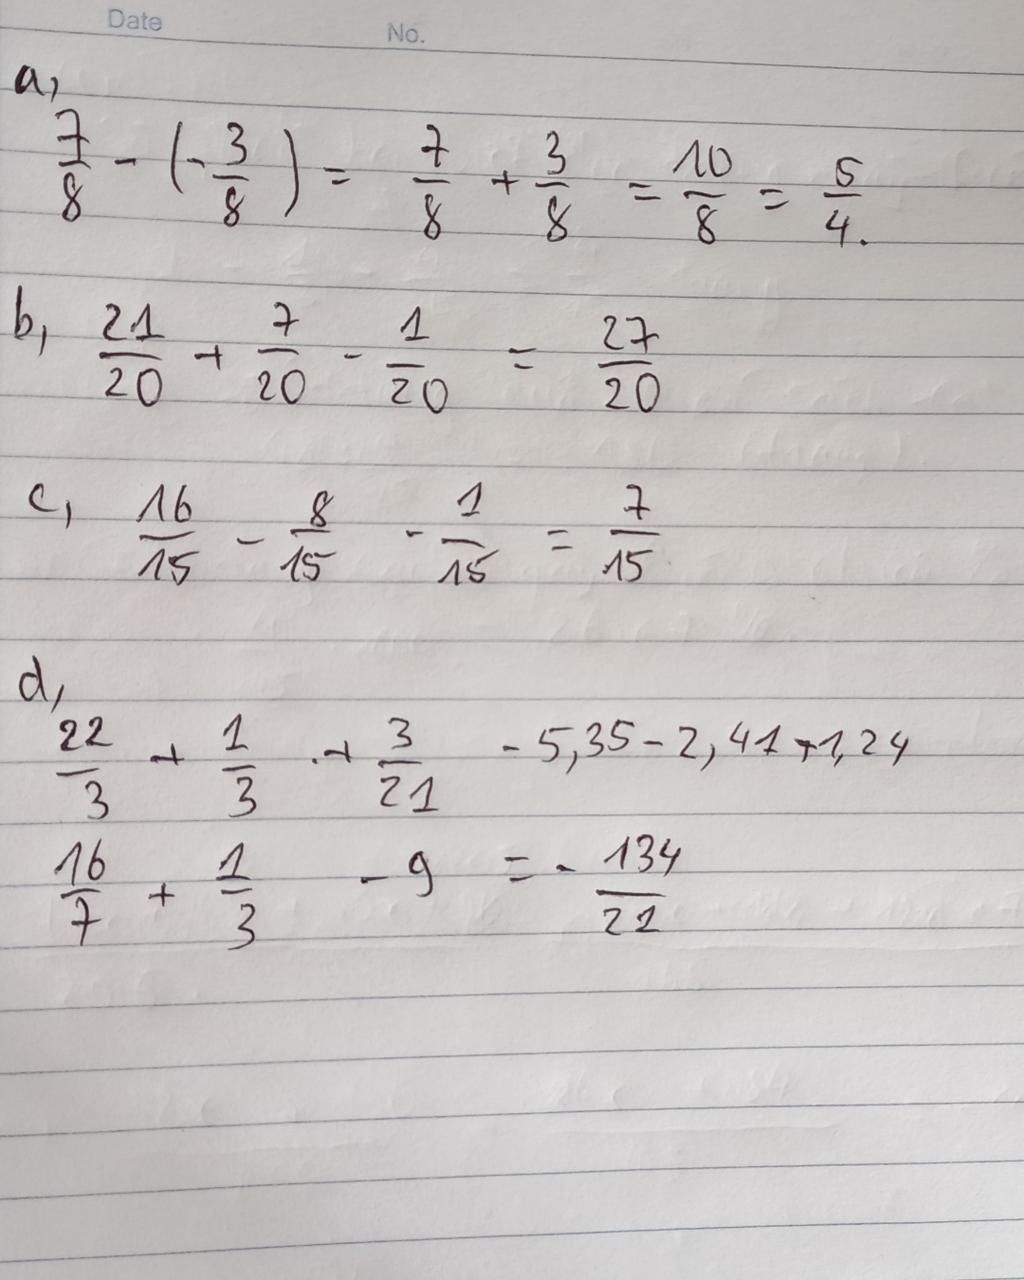 Date No.
a,
7/8 - (-3/8) = 7/8 + 3/8 = 10/8 = 5/4.
b, 21/20 + 7/20 - 1/20 = 27/20
c, 16/15 - 8/15 - 1/15 = 7/15
d,
22/3 + 1/3 + 3/21 - 5,35 - 2,41 + 1,24
16/7 + 1/3 - 9 = - 134/21